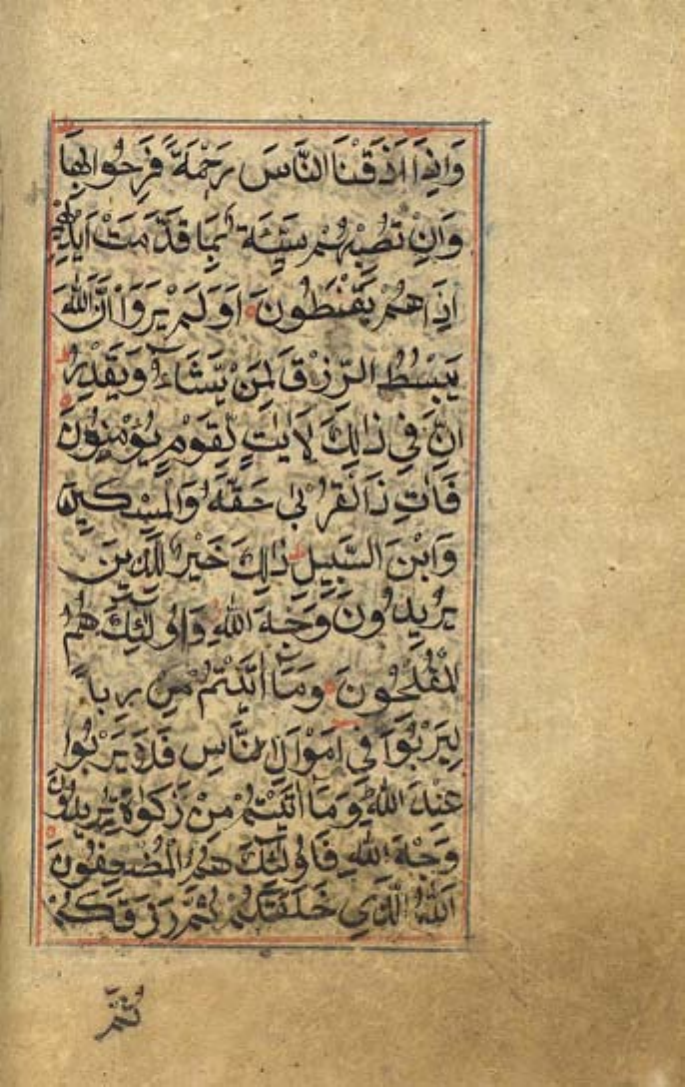 وَاِذَا اَذَقْنَا النَّاسَ رَحْمَةً فَرِحُوا بِهَا
وَاِنْ تُصِبْهُمْ سَيِّئَةٌ بِمَا قَدَّمَتْ اَيْدِيْهِمْ
اِذَا هُمْ يَقْنَطُونَ اَوَلَمْ يَرَوْا اَنَّ اللّٰهَ
يَبْسُطُ الرِّزْقَ لِمَنْ يَّشَآءُ وَيَقْدِرُ
اِنَّ فِي ذَالِكَ لَاٰيَاتٍ لِّقَوْمٍ يُؤْمِنُوْنَ
فَاٰتِ ذَا لْقُرْبٰى حَقَّهٗ وَالْمِسْكِيْنَ
وَابْنَ السَّبِيْلِ ذٰلِكَ خَيْرٌ لِّلَّذِيْنَ
يُرِيْدُوْنَ وَجْهَ اللّٰهِ وَاُولٰٓئِكَ هُمُ
لْمُفْلِحُوْنَ وَمَآ اٰتَيْتُمْ مِنْ رِبًا
لِيَرْبُوَا فِي اَمْوَالِ النَّاسِ فَلَا يَرْبُوا
عِنْدَ اللّٰهِ وَمَا اٰتَيْتُمْ مِنْ زَكٰوةٍ تُرِيْدُوْنَ
وَجْهَ اللّٰهِ فَاُولٰٓئِكَ هُمُ الْمُضْعِفُوْنَ
اَللّٰهُ الَّذِي خَلَقَكُمْ ثُمَّ رَزَقَكُمْ
ثُمَّ